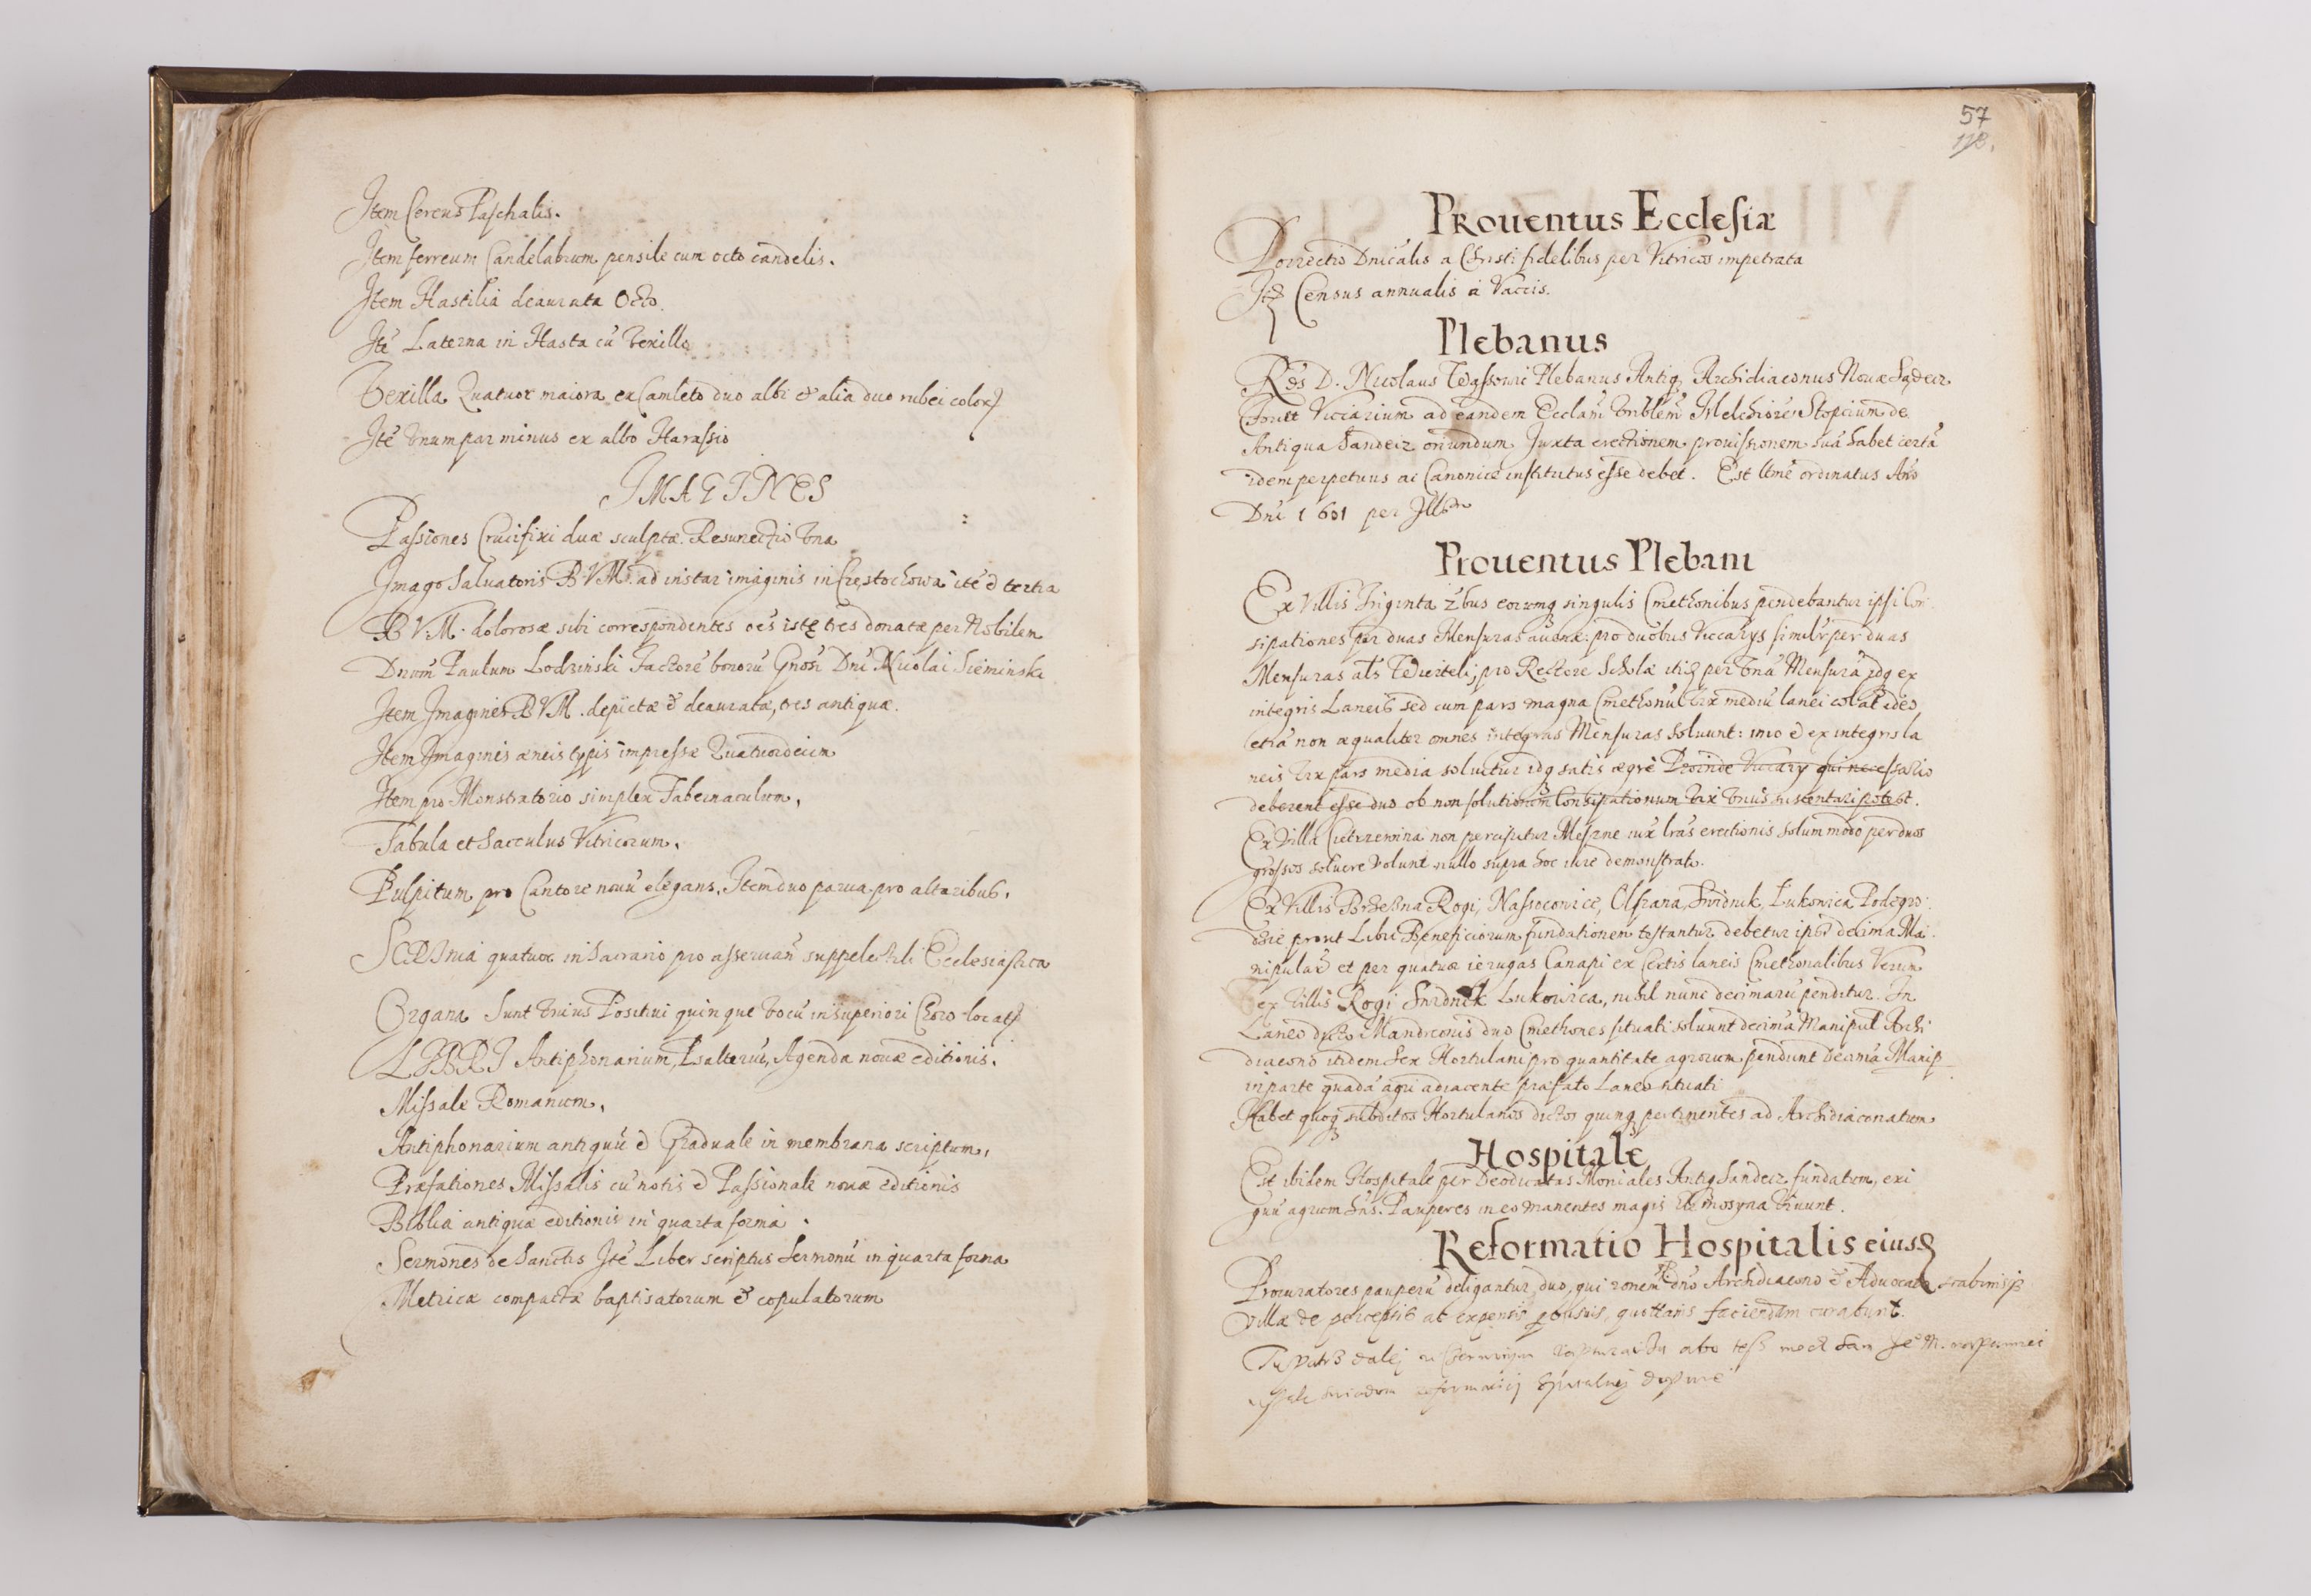 Item Cereus Paschalis.
Item ferreum Candelabrum pensile cum octo candelis.
Item Hastilia deaurata Octo.
Itē Laterna in Hasta cū vexillo
Vexilla Quatuor maiora ex Camleto duo albi & alia duo rubei color
Itē vnum par minus ex albo Harassio
IMAGINES
Passiones Crucifixi duæ sculptæ. Resurrectio vna
Imago Saluatoris B.V.M. ad instar imaginis in Częstochowa itē & tertia
B V.M. dolorosæ sibi correspondentes oēs istę tres donatæ per Nobilem
Dnum Paulum Lodzinski Factorē bonorū Gnosi Dni Nicolai Sieminski
Item Imagines B V M. depictæ & deauratæ, tres antiquæ.
Item Imaginis æneis typis impressæ Quatuordecim
Item pro Monstratorio simplex Tabernaculum,
Tabula et Sacculus Vitricorum.
Pulpitum pro Cantore nouū elegans. Item duo parua pro altaribus.
SCRInia quatuor in Sacrario pro asseruan suppelectili Ecclesiastica
Organa Sunt vnius Positiui quinque vocū in superiori Choro locat
LIBRI Antiphonarium, Psalteriū, Agenda nouæ editionis.
Missale Romanum,
Antiphonarium antiquū & Graduale in membrana scriptum,
Præfationes Missalis cū notis & Passionale nouæ editionis
Biblia antiquæ editionis in quarta forma.
Sermones de Sanctis Itē Liber scriptus Sermonū in quarta forma
Metricæ compactæ baptisatorum & copulatorum
57
118.
Prouentus Ecclesiæ
Porrectio Dnicalis a Christi fidelibus per Vitricos impetrata
Itē Census annualis á Vaccis.
Plebanus
Rds D. Nicolaus Wassowic Plebanus Antiq Archidiaconus Nouæ Sądecz
fouet Viccarium ad eandem Ecclām Melchiorē Stopcium de
Antiqua Sandecz oriundum Juxta erectionem prouisionem suā habet certā
idem perpetuus ac Canonice institutus esse debet. Est ltme ordinatus Ano
Dni 1601 per Illm
Prouentus Plebani
Ex Villis Triginta 2bus eorumq singulis Cmethonibus pendebantur ipsi Con
sipationes per duas Mensuras auenæ: pro duobus Viccarys similr per duas
Mensuras als Wierteli, pro Rectore Scholæ itiq per vnā Mensurā idq ex
integris Laneis sed cum pars magna Cmethonū vix mediū lanei colat ideo
etiā non æqualiter omnes integras Mensuras soluunt: imo & ex integris la
neis vix pars media soluitur idq satis ægrè Proinde Viccary qui necessario
deberent esse duo ob non solutionem Consipationum vix vnus sustentari potest.
Ex villa non percipitur Meszne iux lrās erectionis solummodo per duos
grossos soluere volunt nullo supra hoc iure demonstrato.
Ex Villis Brzezna Rogi, Nassocowice, Olszana, Swidnik, Lukowica Podegro
dzie prout Libri Beneficiorum fundationem testantur debetur ipsi decima Ma
nipular et per quatuor ierugas Canapi ex Certis laneis Cmethonalibus Verum
ex villis Rogi Swidnik Lukowica, nihil nunc decimarū penditur. In
Laneo dicto Mandrconis duo Cmethones situati soluunt decimā Manipul Archi
diacono itidem Sex Hortulani pro quantitate agrorum pendunt decimā Manip
in parte quadā agri adiacente præfato Laneo situati
Habet quoq subditos Hortulanos dictos quinq pertinentes ad Archidiaconatum
Hospitale
Est ibidem Hospitale per Deodicatas Moniales Antiq Sandecz fundatum, exi
guū agrum hns. Pauperes in eo manentes magis Elemosyna viuunt.
Reformatio Hospitalis eiusq
Procuratores pauperū deligantur duo, qui ronem dno Archidiacono & Aduocato scabinisq
villæ de perceptis ac expensis quottanis faciendam curabunt.